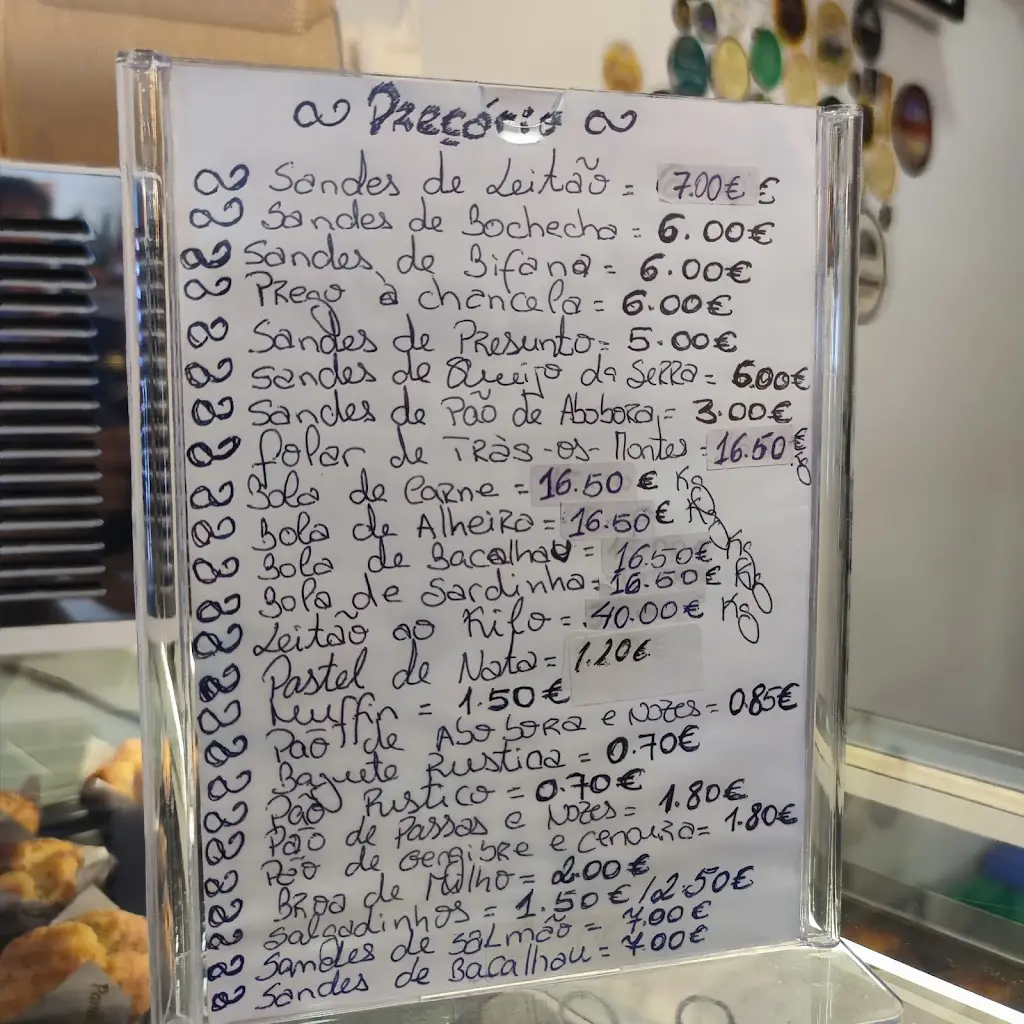 Preçório
Sandes de Leitão = 7.00€ €
Sandes de Bochecha = 6.00€
Sandes de Bifana = 6.00€
Prego à chancela = 6.00€
Sandes de Presunto = 5.00€
Sandes de Queijo da Serra = 6.00€
Sandes de Pão de Abobora = 3.00€
Folar de Tràs-os-Montes = 16.50€
Bola de Carne = 16.50 € Kg
Bola de Alheira = 16.50€ Kg
Bola de Bacalhau = 16.50€ Kg
Bola de Sardinha = 16.50€ Kg
Leitão ao Kilo = 40.00€ Kg
Pastel de Nata = 1.20€
Muffin = 1.50€
Pão de Abobora e Nozes = 0.85€
Baguete Rustica = 0.70€
Pão Rustico = 0.70€
Pão de Passas e Nozes = 1.80€
Pão de Gengibre e Cenoura = 1.80€
Broa de Milho = 2.00€
Salgadinhos = 1.50€/2.50€
Sandes de Salmão = 7.00€
Sandes de Bacalhau = 7.00€